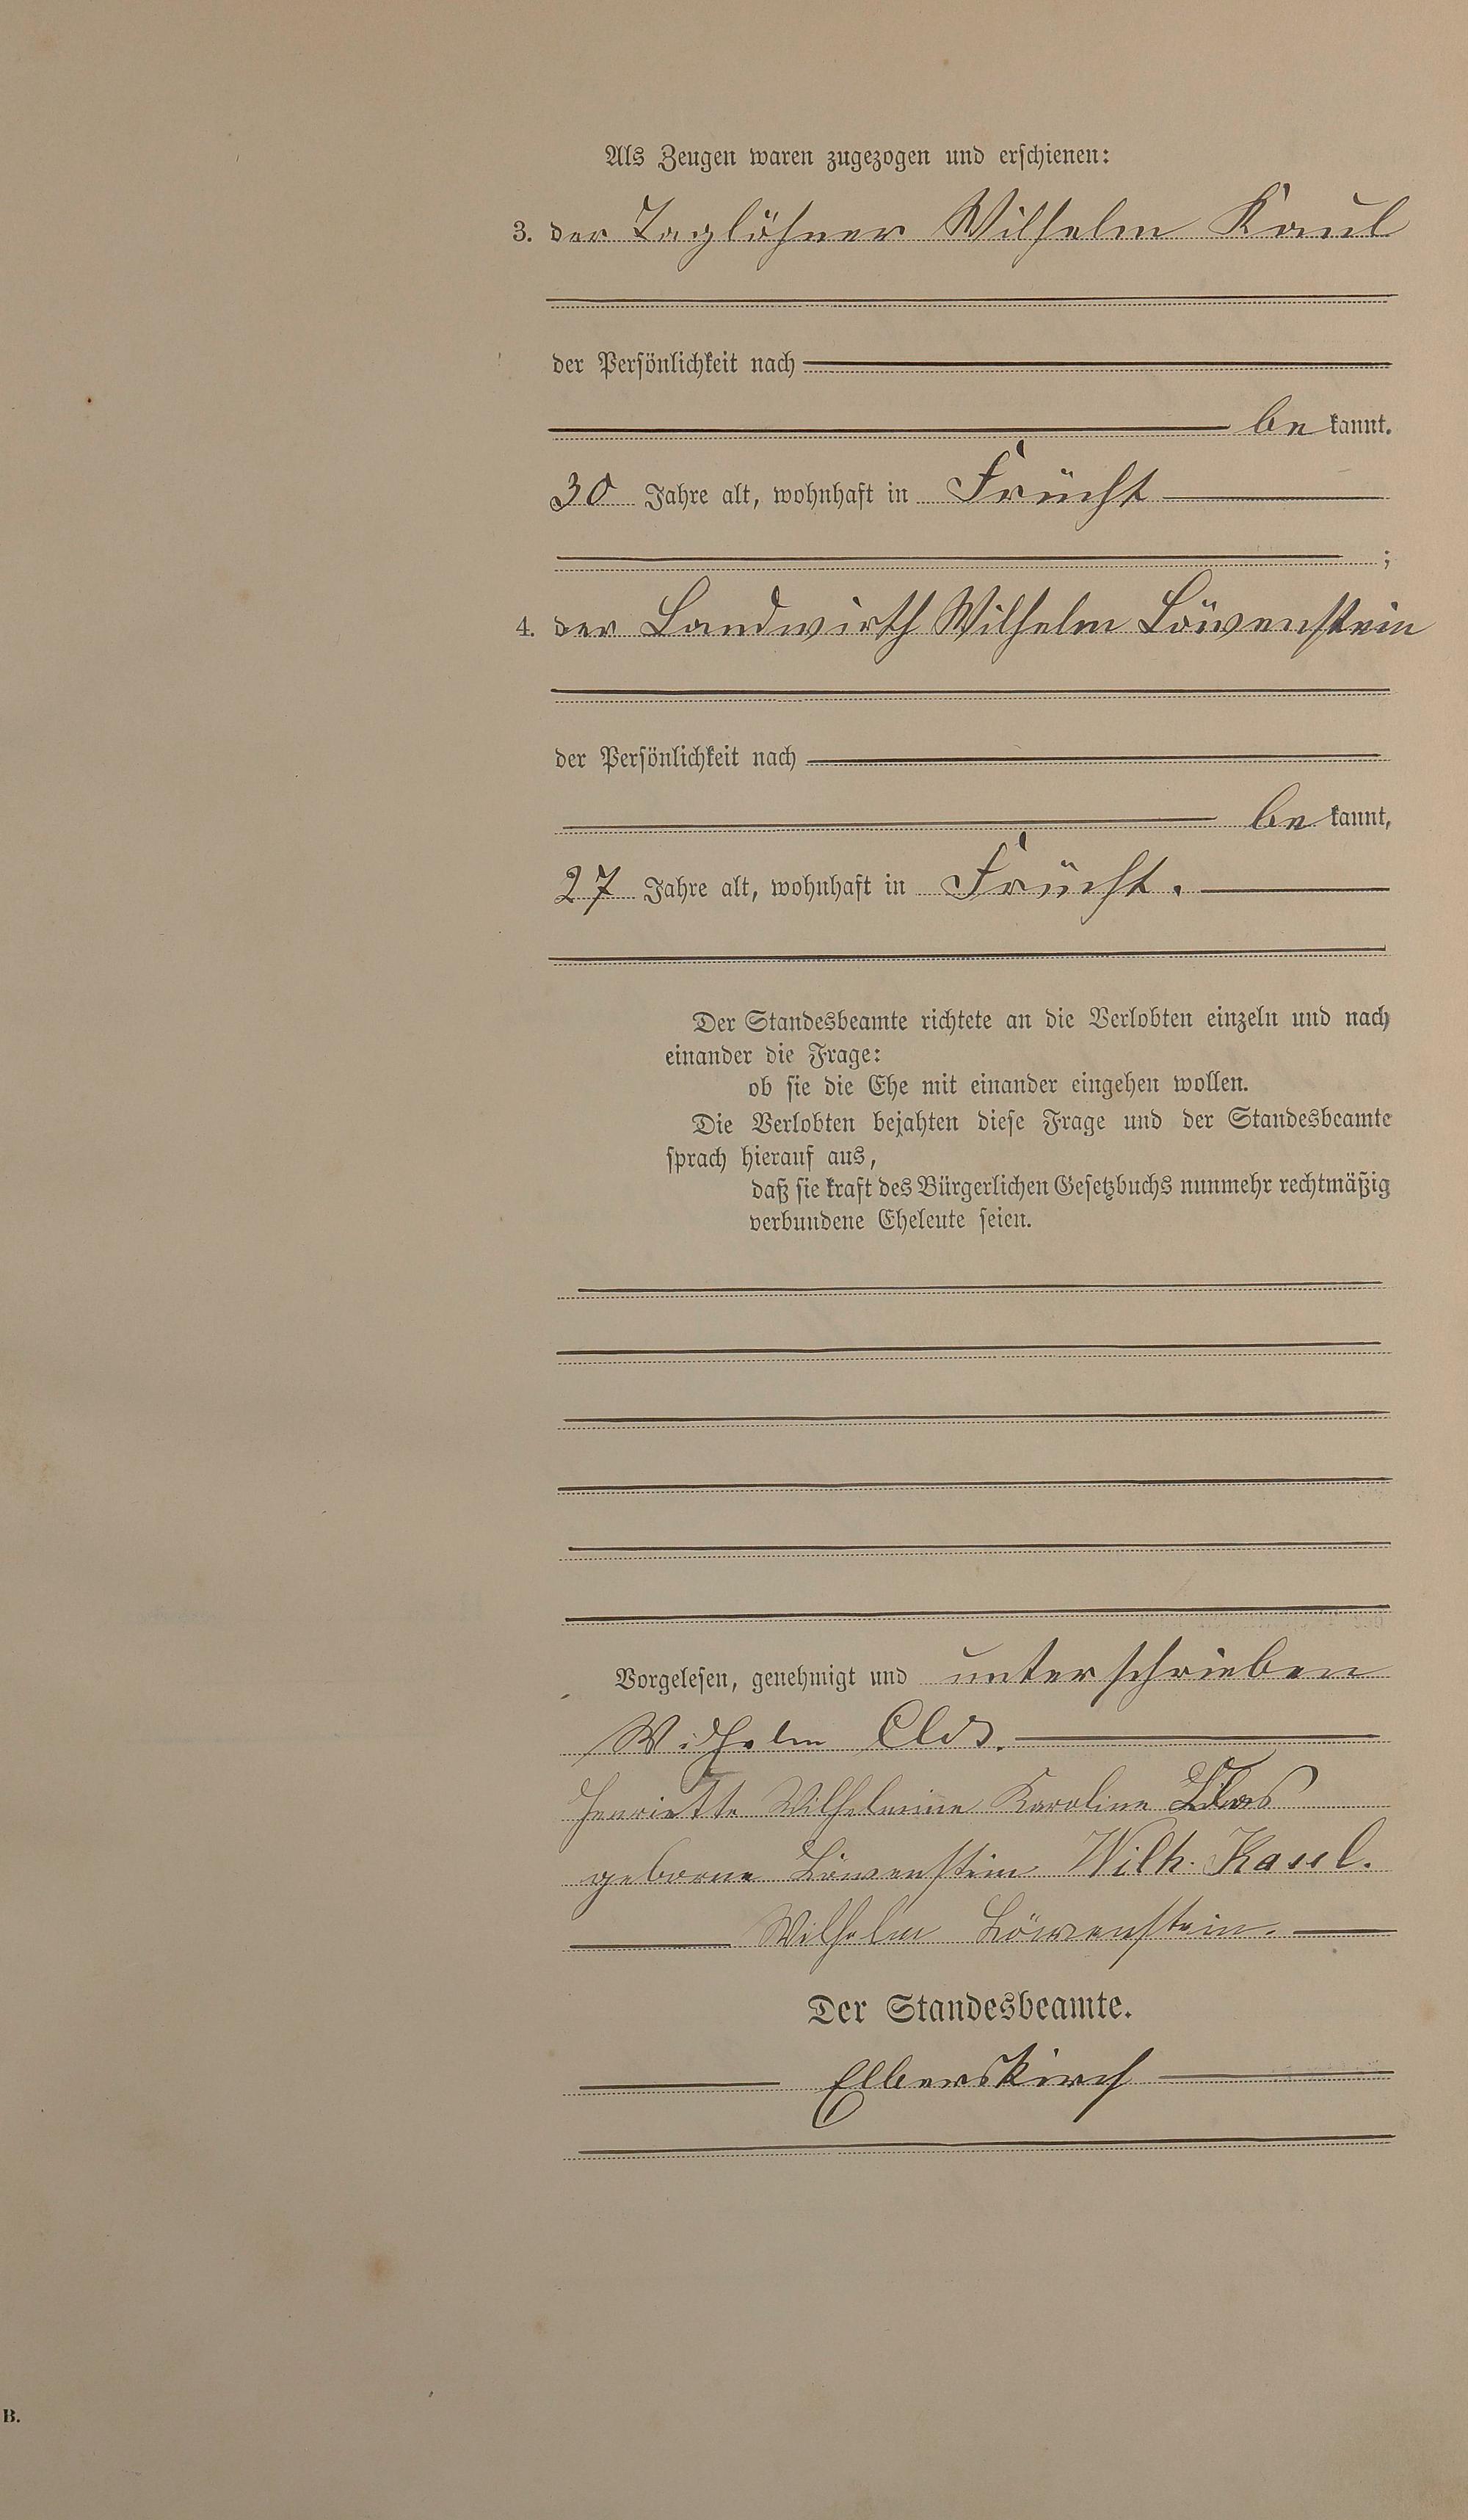 Als Zeugen waren zugezogen und erschienen:
3. der Taglöhner Wilhelm Kaul
der Persönlichkeit nach
be kannt.
30 Jahre alt, wohnhaft in Frücht
;
4. der Landwirth Wilhelm Löwenstein
der Persönlichkeit nach
be kannt,
27 Jahre alt, wohnhaft in Frücht.
Der Standesbeamte richtete an die Verlobten einzeln und nach
einander die Frage:
ob sie die Ehe mit einander eingehen wollen.
Die Verlobten bejahten diese Frage und der Standesbeamte
sprach hierauf aus,
daß sie kraft des Bürgerlichen Gesetzbuchs nunmehr rechtmäßig
verbundene Eheleute seien.
Vorgelesen, genehmigt und unterschrieben
Wilhelm Clos.
Henriette Wilhelmine Karoline Clos
geborne Löwenstein Wilh. Kaul.
Wilhelm Löwenstein.
Der Standesbeamte.
Elberskirch
B.